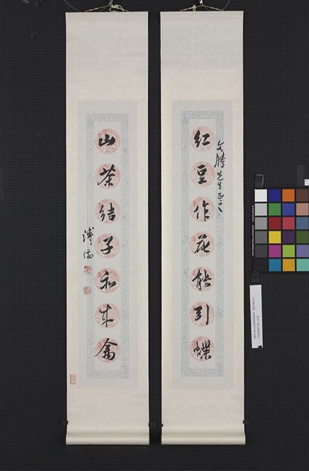 紅豆作花能引蝶
文勝先生正
山茶結子和來禽
溥儒